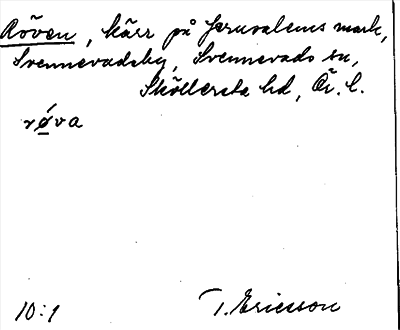 Röven, kärr på Jerusalems mark,
Svennevadsby, Svennevads sn,
Sköllersta hd, Ör. l.
röva
10:1 T. Ericsson